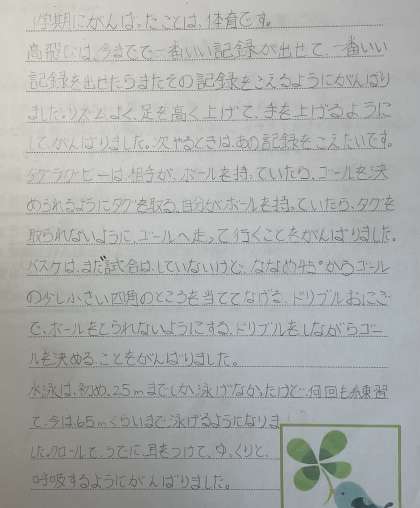 1学期にがんばったことは、体育です。
高飛びは、今までで一番いい記録が出せて、一番いい
記録を出せたらまたその記録をこえるようにがんばり
ました。リズムよく、足を高く上げて、手を上げるように
してがんばりました。次やるときは、あの記録をこえたいです。
タグラグビーは、相手が、ボールを持っていたら、ゴールを決
められるようにタグを取る。自分がボールを持っていたら、タグを
取られないように、ゴールへ走って行くことをがんばりました。
バスケは、まだ試合は、していないけど、ななめ45°からゴール
の少し小さい四角のところを当ててなげる。ドリブルおにご
で、ボールをとられないようにする。ドリブルをしながらゴー
ルを決めることをがんばりました。
水泳は、初め、25mまでしか泳げなかったけど、何回も練習
て、今は、65mくらいまで泳げるようになりま
した。クロールで、うでに、耳をつけて、ゆっくりと、
呼吸するようにがんばりました。